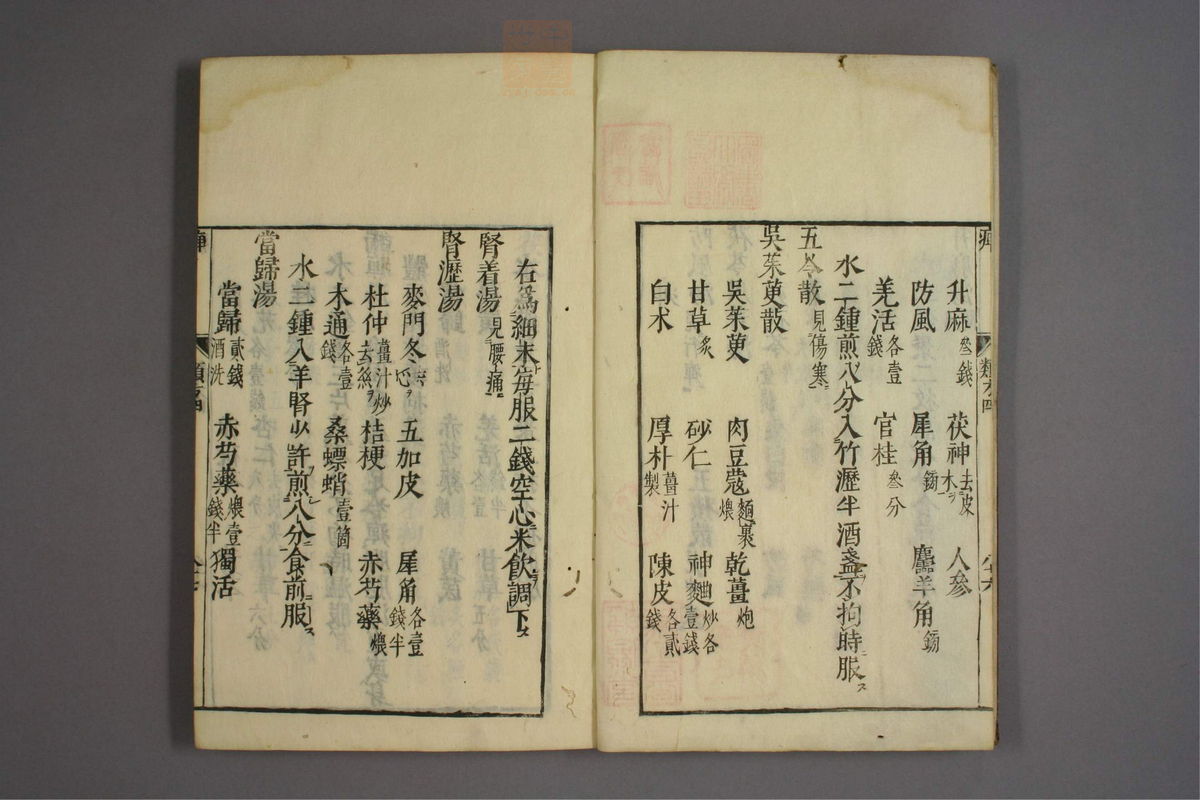 升麻叄錢 茯神去皮木 人參
防風 犀角鎊 麢羊角鎊
羌活各壹錢 官桂叄分
水二鍾煎八分入竹瀝半酒盞不拘時服
五苓散見傷寒
吳茱萸散
吳茱萸 肉豆蔻麵裹煨 乾薑炮
甘草炙 砂仁 神麯炒各壹錢
白朮 厚朴薑汁製 陳皮各貳錢
右爲細末每服二錢空心米飲調下
腎着湯見腰痛
腎瀝湯
麥門冬去心 五加皮 犀角各壹錢半
杜仲薑汁炒去絲 桔梗 赤芍藥煨
木通各壹錢 桑螵蛸壹箇
水二鍾入羊腎少許煎八分食前服
當歸湯
當歸貳錢酒洗 赤芍藥煨壹錢半 獨活